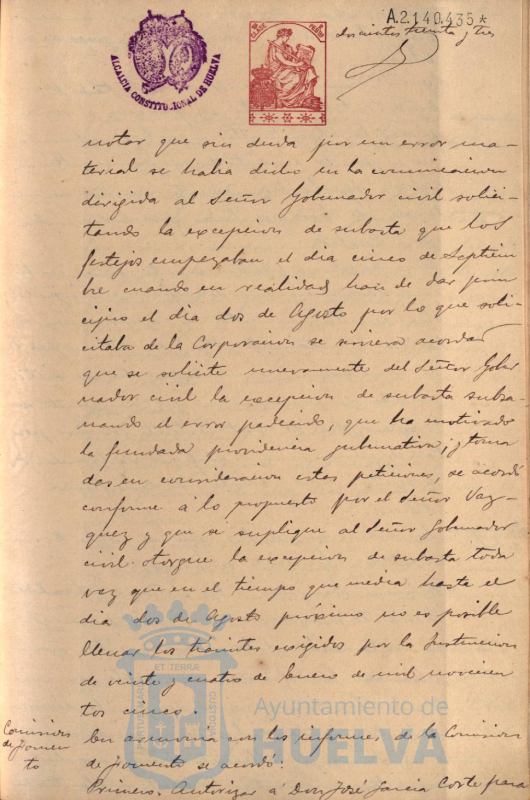 A.2.140.435*
Doscientos treinta y tres
CLASE
ALCALDIA CONSTITUCIONAL DE HUELVA
notar que sin duda por un error ma-
terial se habia dicho en la comunicacion
dirigida al Señor Gobernador civil solici-
tando la excepcion de subasta que los
festejos empezaban el dia cinco de Septiem
bre cuando en realidad han de dar prin
cipio el dia dos de Agosto por lo que soli-
citaba de la Corporacion se sirviera acordar
que se solicite nuevamente del Señor Gober
nador civil la excepcion de subasta subsa-
nando el error padecido, que ha motivado
la fundada providencia gubernativa; y toma
das en consideracion estas peticiones, se acordó
conforme á lo propuesto por el Señor Vaz-
quez y que se suplique al Señor Gobernador
civil otorgue la excepcion de subasta toda
vez que en el tiempo que media hasta el
dia dos de Agosto próximo no es posible
llenar los trámites exigidos por la Instruccion
de veinte y cuatro de Enero de mil novecien
tos cinco.
Comision
de Fomen
to
En armonia con los informes de la Comision
de Fomento se acordó:
Primero. Autorizar á Don José Garcia Corte para
Ayuntamiento de
HUELVA